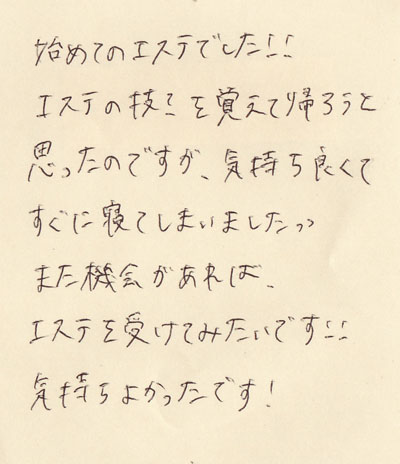 始めてのエステでした!!
エステの技?を覚えて帰ろうと
思ったのですが、気持ち良くて
すぐに寝てしまいましたっ
また機会があれば、
エステを受けてみたいです!!
気持ちよかったです!